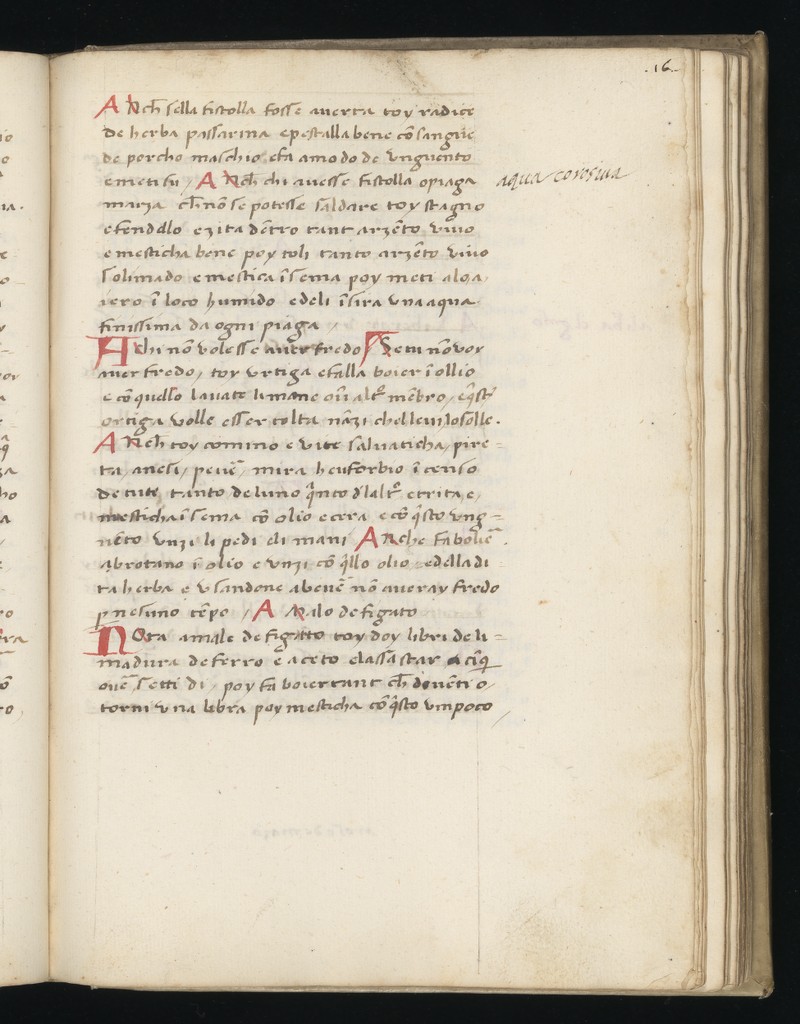 .16.
ANch sella fistolla fosse auerta toy radice
de herba passarina e pestalla bene cō sangue
de porcho maschio e fa a modo de vnguento
e meti su / ANch chi auesse fistolla o piaga
aqua corosiua
marza ch nō se potesse saldare toy stagno
e fendello e zita dētro tant arzēto viuo
e mesticha bene poy toli tanto arzēto viuo
solimado e mestica īsema poy meti
ī loco humido e deli īsira vna aqua
finissima da ogni piaga /
A chi nō volesse auer fredo Se tu nō voy
auer fredo / toy vrtiga e falla boier ī ollio
e cō quello lauate li mane
ortiga volle esser colta nāzi che lleui lo solle .
ANch toy comino e vite saluaticha / pire=
ta / anesi / peuē / mira h euforbio īcenso
de tute tanto de luno q̄nto e trita e /
mesticha īsema cō olio e cera e cō q̄sto vng=
nēto vnzi li pedi e li mani / ANche fa bolīē .
abrotano ī olio e vnzi cō q̄llo olio e della di=
ta herba e vsandone a beuē nō aueray fredo
p nesuno tēpo / A Malo de figato
NOta a male de figatto toy doy libri de li=
madura de ferro ē aceto e lassa star
ouē setti di / poy fa boier tant ch deuēti o
torni vna libra poy mesticha cō q̄sto vn poco /